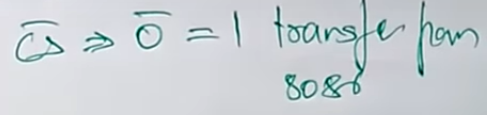 C̅S̅ ⇒ O̅ = 1 transfer from
8086